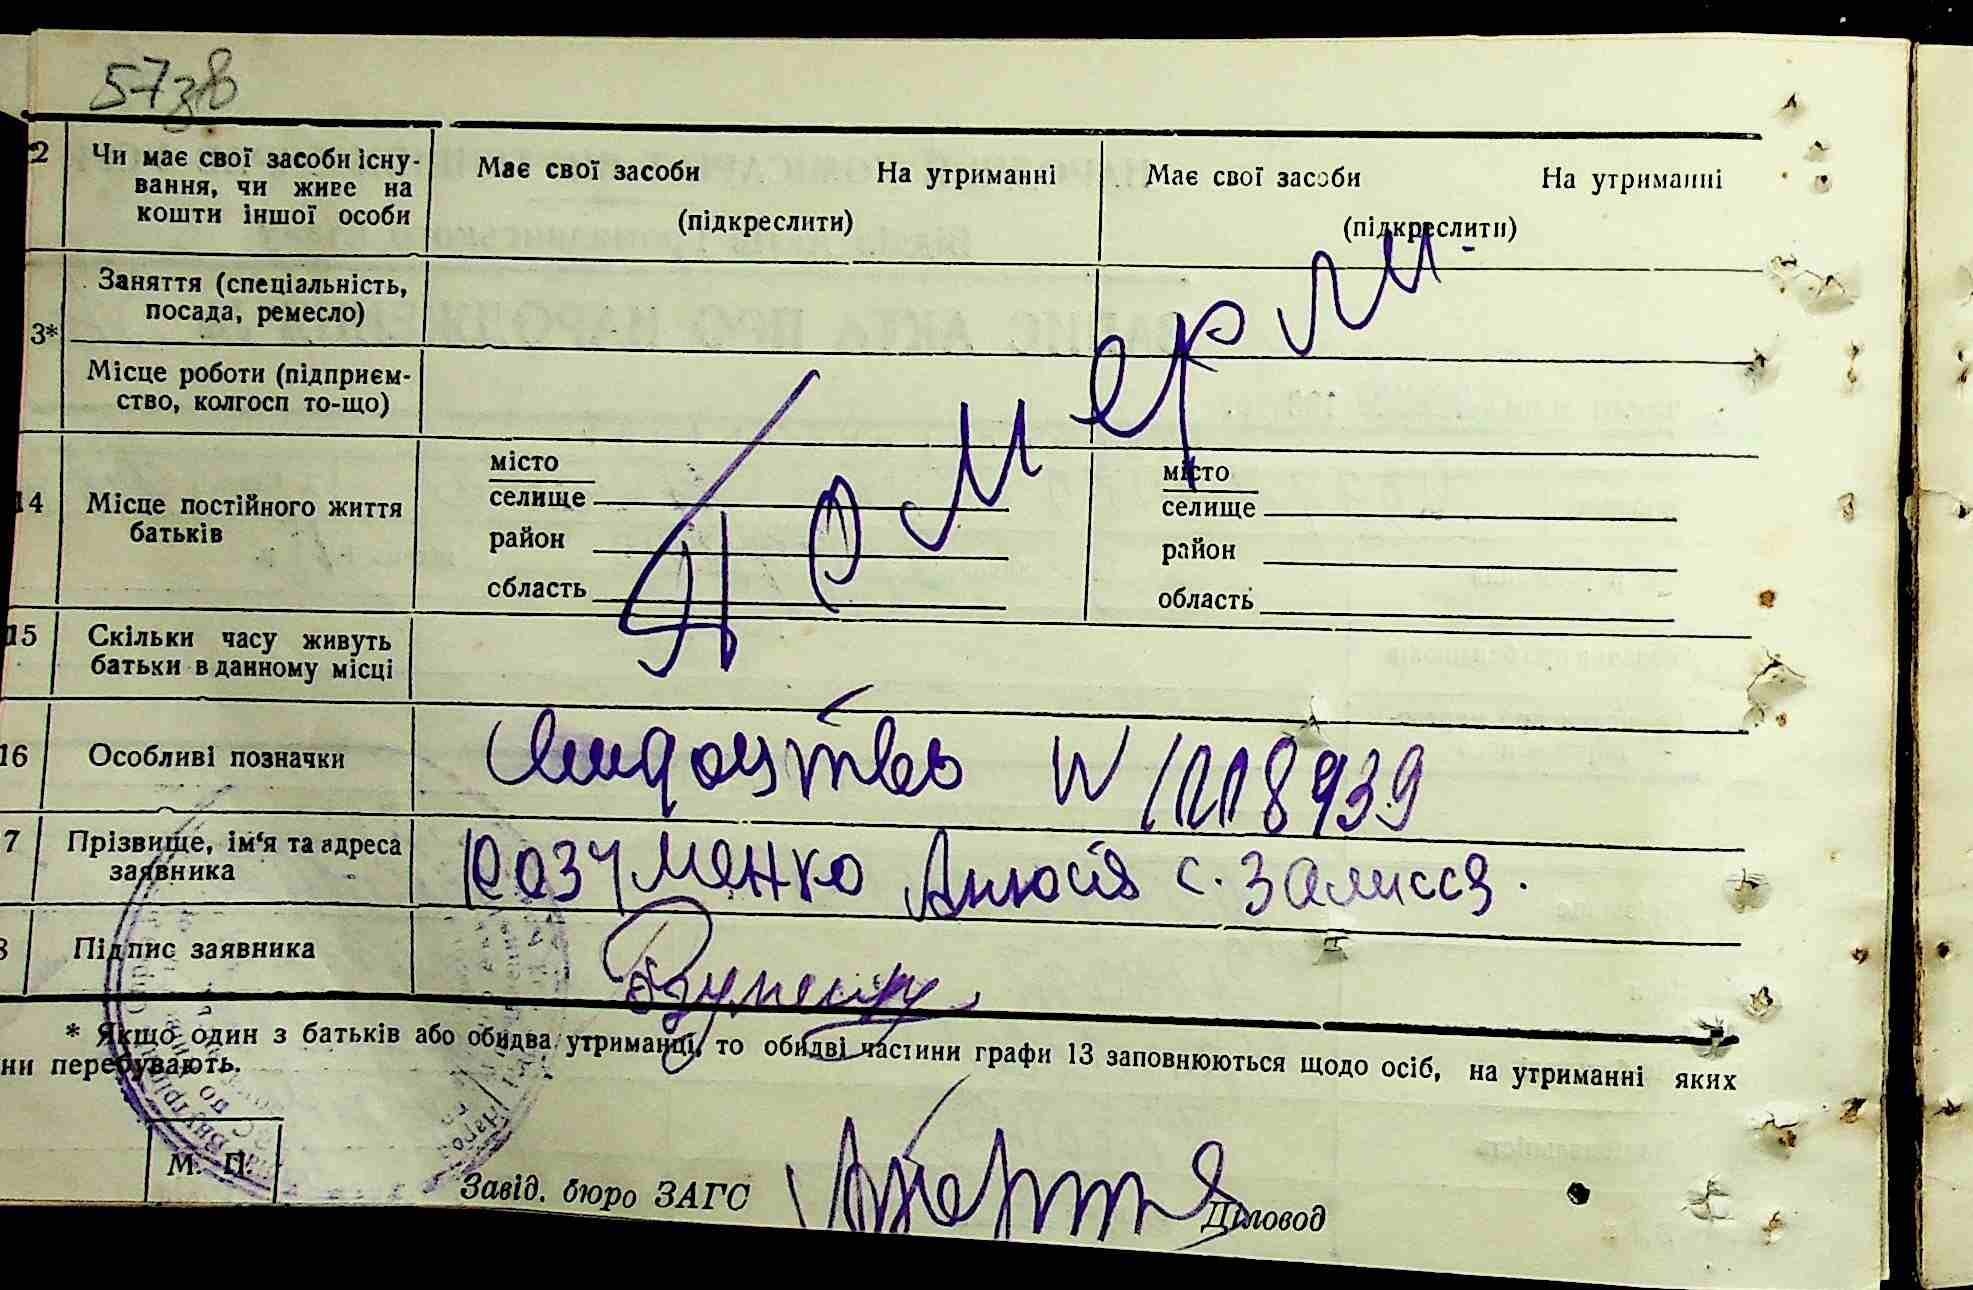 5738
2 Чи має свої засоби існу-
вання, чи живе на
кошти іншої особи
Має свої засоби На утриманні
(підкреслити)
Має свої засоби На утриманні
(підкреслити)
3*
Заняття (спеціальність,
посада, ремесло)
Місце роботи (підприєм-
ство, колгосп то-що)
Померли
14 Місце постійного життя
батьків
місто
селище
район
область
місто
селище
район
область
15 Скільки часу живуть
батьки в данному місці
16 Особливі позначки
N
7 Прізвище, ім'я та адреса
заявника
Розуменко с. Залисся.
8 Підпис заявника
* Якщо один з батьків або обидва утриманці, то обидві частини графи 13 заповнюються щодо осіб, на утриманні яких
ни перебувають.
М. П.
Завід. бюро ЗАГС Діловод